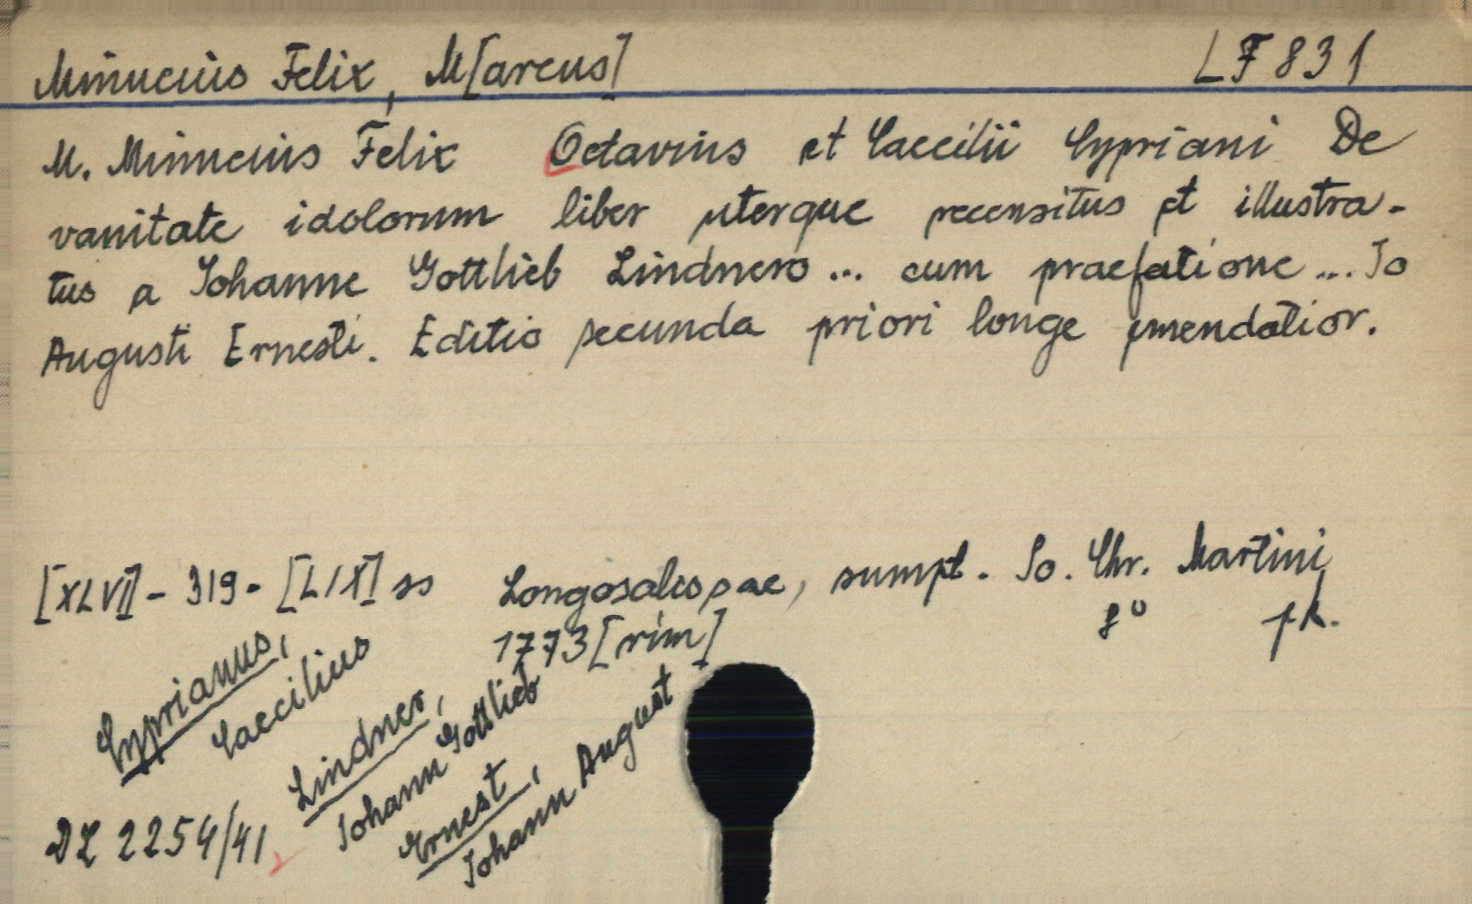 Minucius Felix, M[arcus] LF 831
M. Minucius Felix Octavius et Caecilii Cypriani De
vanitate idolorum liber uterque recensitus et illustra-
tus a Iohanne Gottlieb Lindnero ... cum praefatione ... Io
Augusti Ernesti. Editio secunda priori longe emendatior.
[XLVI] - 319 - [LIX] ss Longosalissae, sumpt. Io. Chr. Martini
1773 [rim] 8° pk.
Cyprianus,
Caecilius
Lindner,
Iohann Gottlieb
Ernest,
Iohann August
DZ 2254/41